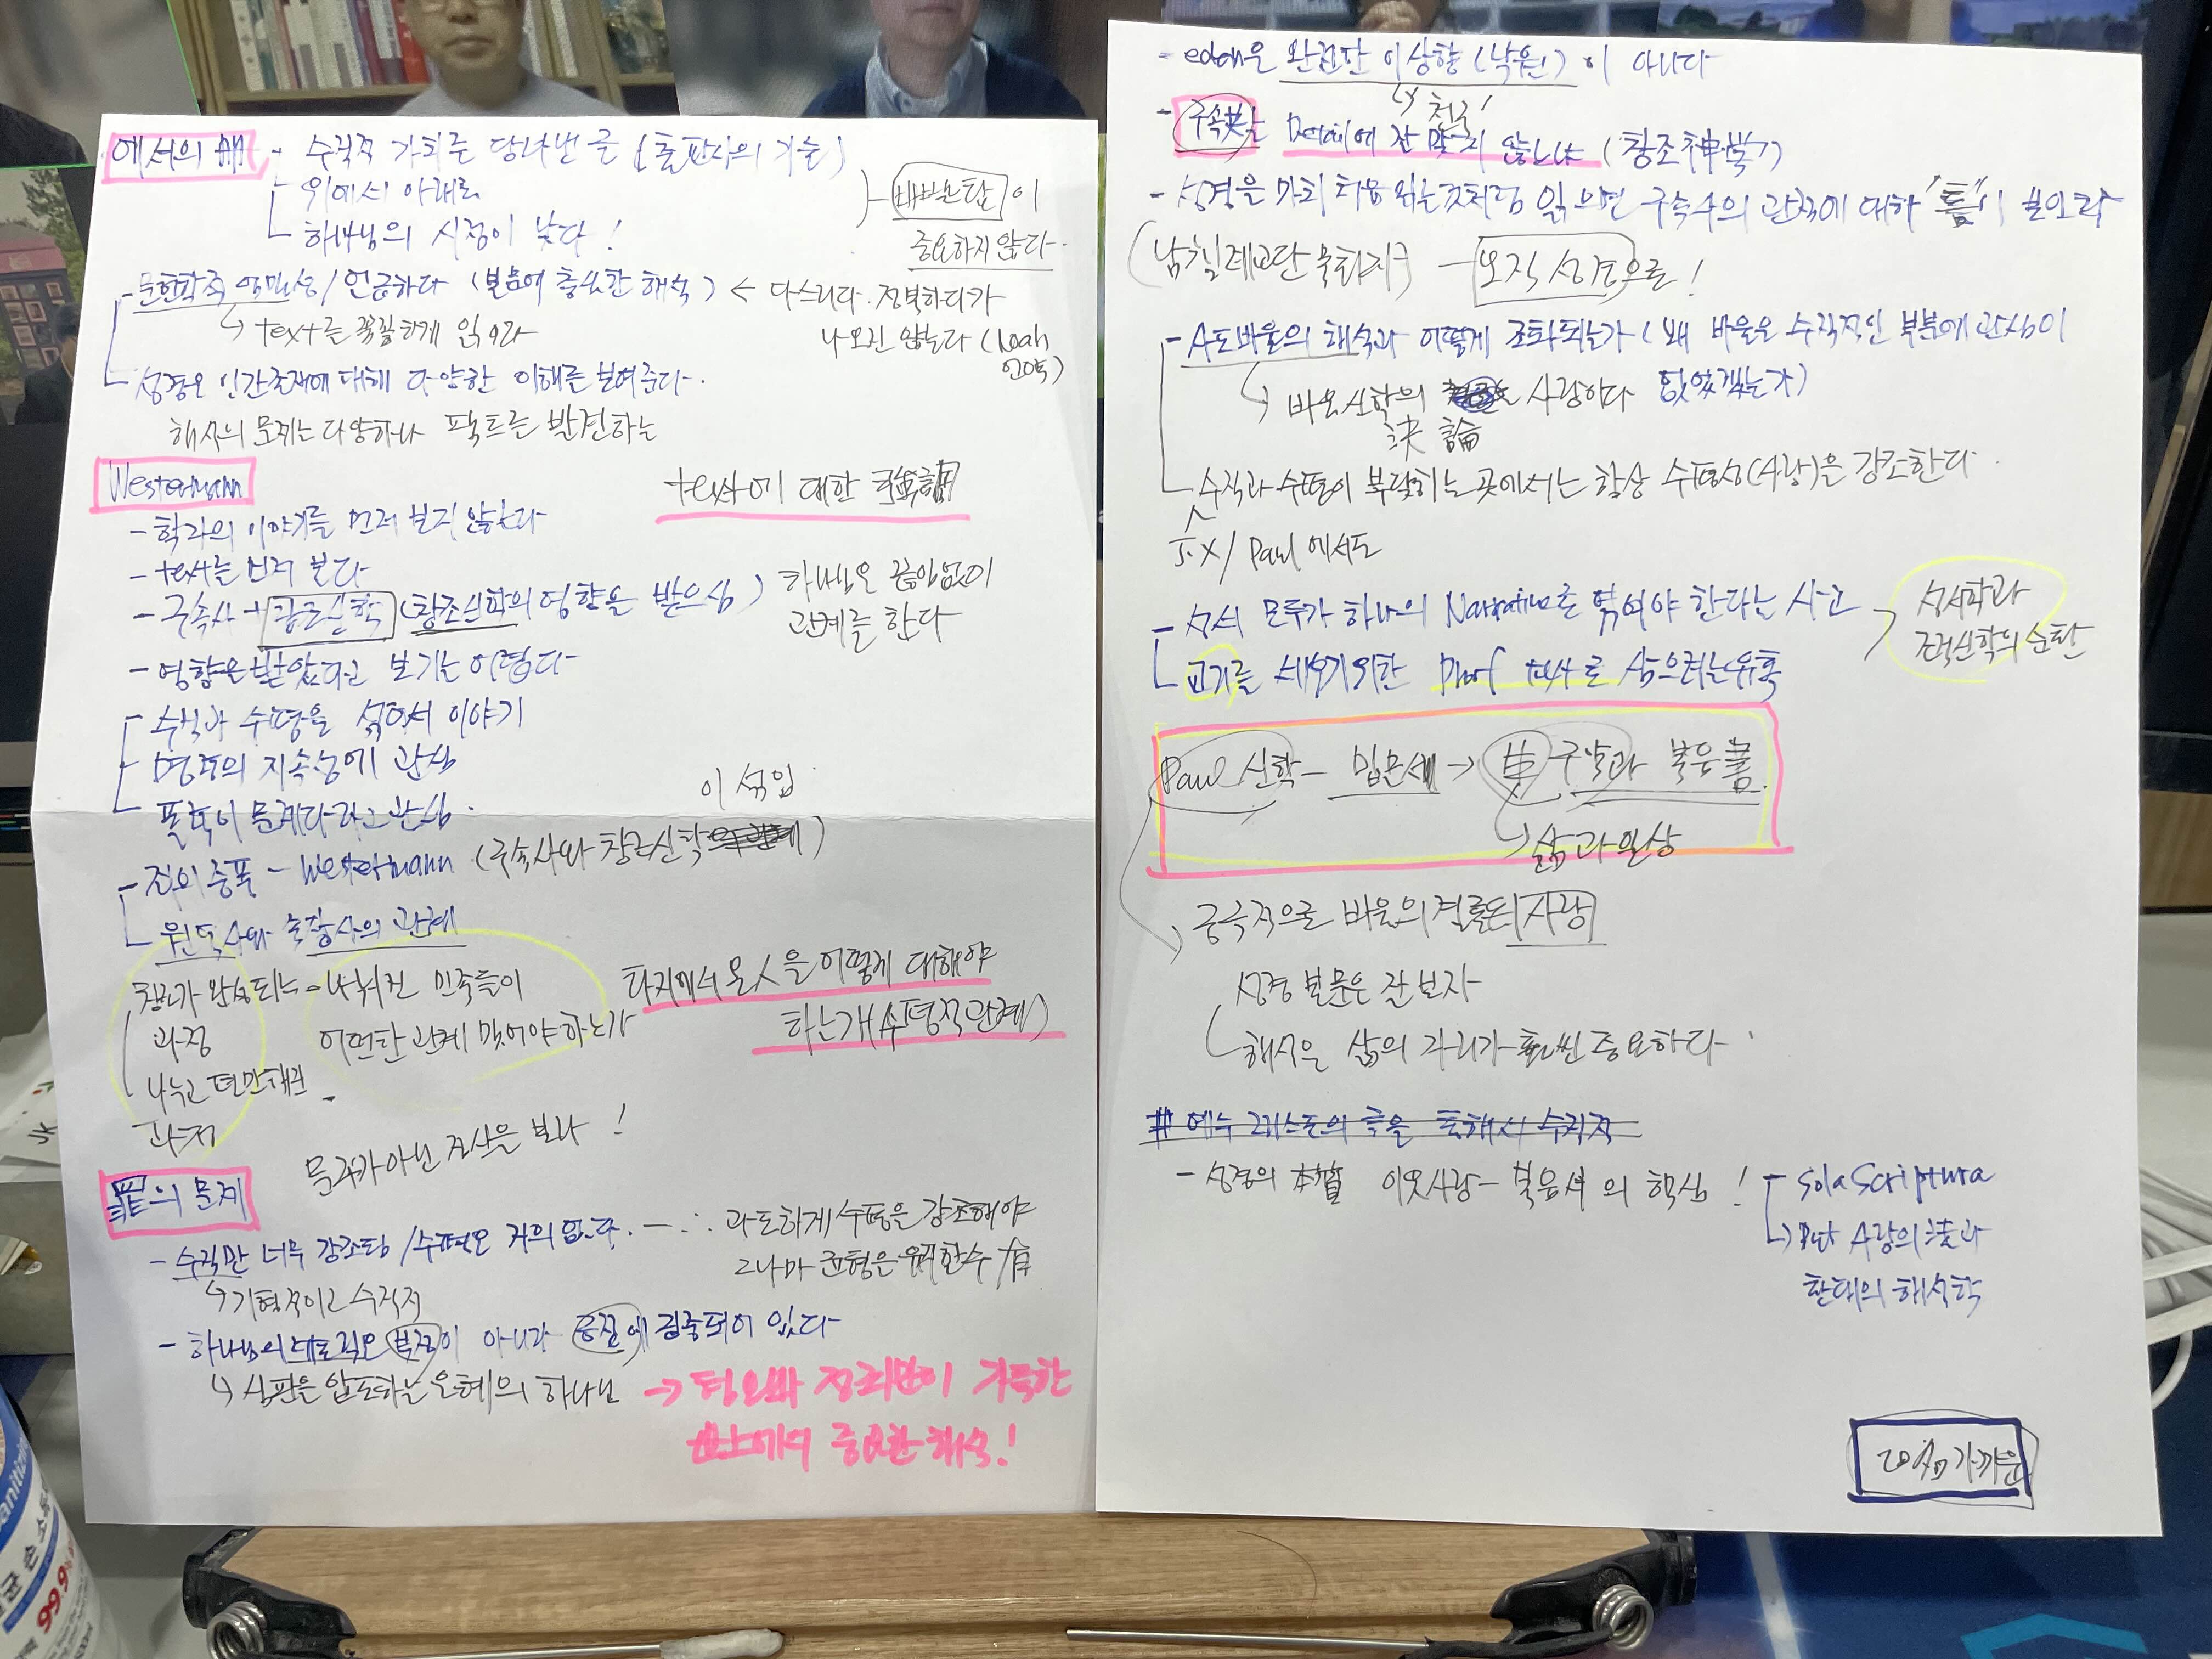 에서의 冊 - 수직적 가치를 담아낸 글 (출판사의 기술)
위에서 아래로
하나님의 시점이 낮다!
바벨탑이
중요하지 않다.
- 문헌학적 엄밀성 / 언급하다 (본문에 충실한 해석) < 다스리다. 정복하다가
나오진 않는다 (Noah
언약)
↳ text를 꼼꼼하게 읽으라
성경은 인간존재에 대해 다양한 이해를 보여준다.
해석의 문제는 다양하나 팩트를 발견하는
Westermann
text에 대한 强調
- 학자의 이야기를 먼저 보지 않는다
- text를 먼저 본다
- 구속사 + 창조신학 (창조신학의 영향을 받으심)
하나님은 끊임없이
관계를 한다
- 영향을 받았다고 보기는 어렵다
- 수직과 수평을 섞어서 이야기
- 명령의 지속성에 관심
- 폭력이 문제다라고 관심.
이 섞임
- 죄의 증폭 - Westermann (구속사와 창조신학)
원역사와 족장사의 관계
창조가 완성되는
과정
나누고 편만해진
과정
- 나눠진 민족들이
어떠한 관계 맺어야 하는가
타지에서 온 人을 어떻게 대해야
하는가 (수평적 관계)
문자가 아닌 진실을 보라!
罪의 문제
- 수직만 너무 강조됨 / 수평은 거의 없다. - ∴ 과도하게 수평을 강조해야
그나마 균형을 유지할 수 有
↳ 기형적이고 수직적
- 하나님의 본질이 아니라 집중되어 있다
↳ 심판을 압도하는 은혜의 하나님 → 혐오와 정죄만이 가득한
세상에서 중요한 해석!
- eden은 완전한 이상향 (낙원)이 아니다
↳ 천국!
- 구속史는 Detail에 잘 맞지 않는다 (창조神學?)
- 성경을 마치 처음 읽는것처럼 읽으면 구속사의 관점에 대해 "틈"이 보인다
(남침례교단 목회자) - 오직 성경으로!
- 사도바울의 해석과 어떻게 조화되는가 (왜 바울은 수직적인 부분에 관심이
있었겠는가)
↳ 바울신학의 사랑이다
決論
수직과 수평이 부딪히는 곳에서는 항상 수평성(사랑)을 강조한다.
J.X / Paul 에서도
- 성서 모두가 하나의 Narrative로 읽혀야 한다는 사고
교리를 세우기 위한 Proof text로 삼으려는 유혹
성서학과
조직신학의 순환
Paul 신학 - 입문세 → 구약과 복음書
↳ 삶과 일상
궁극적으로 바울의 결론도 사랑
성경 본문을 잘 보자
해석은 삶의 자리가 훨씬 중요하다.
# 예수 그리스도의 글을 통해서 수직적
- 성경의 本質 이웃사랑 - 복음서의 핵심!
Sola Scriptura
↳ But 사랑의 法과
환대의 해석학